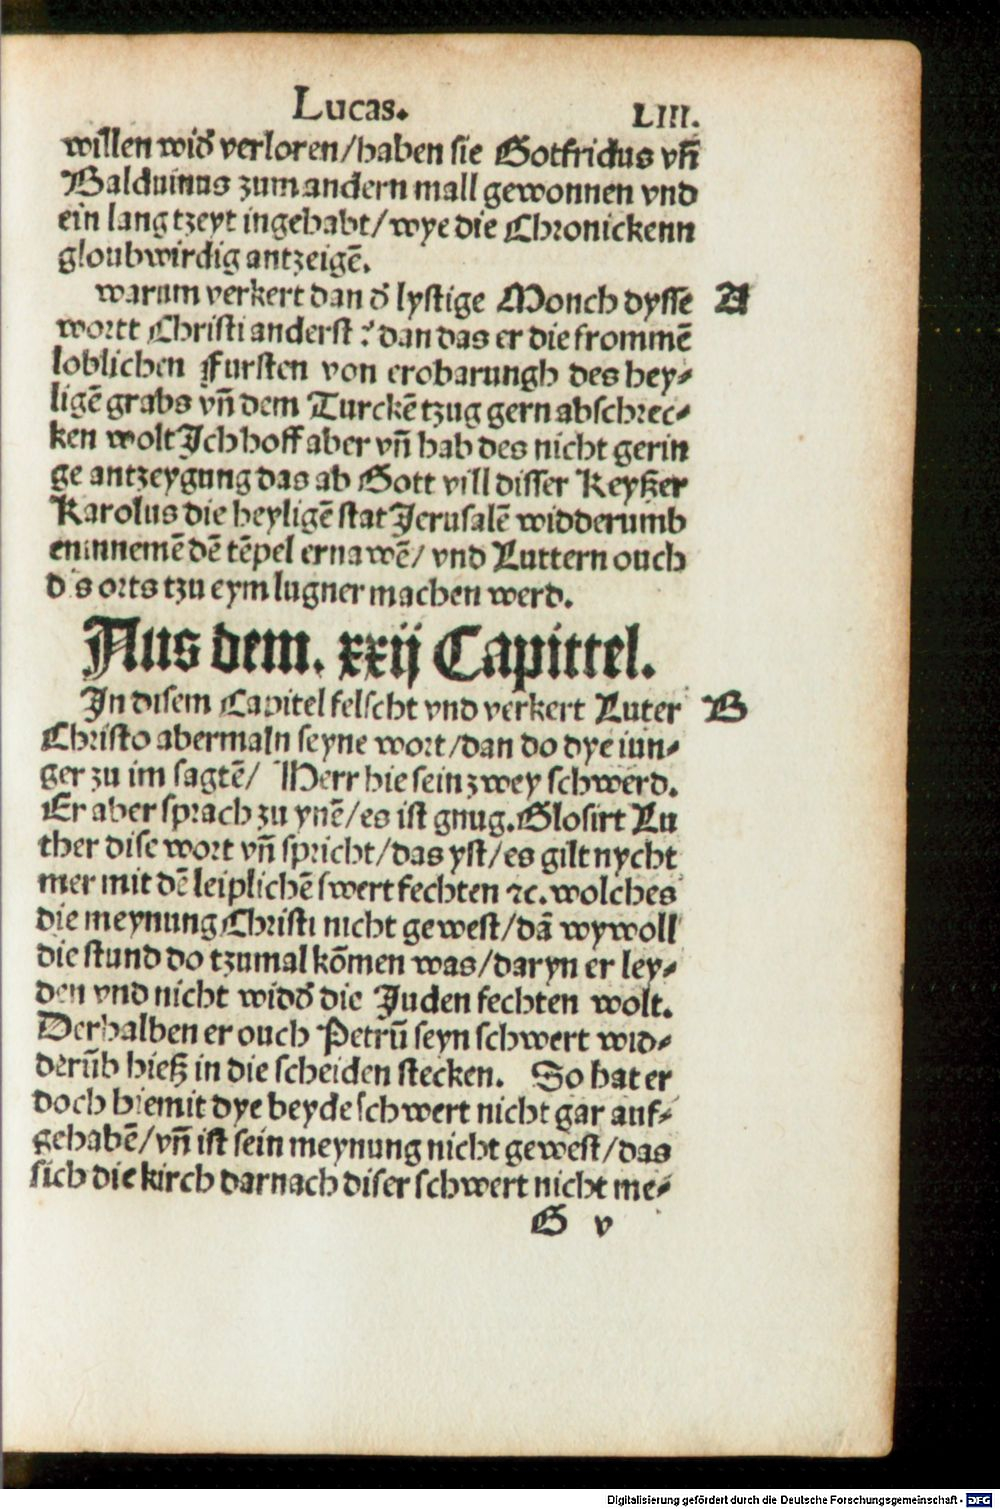 Lucas. LIII.
willen wid᷑ verloren/haben sie Gotfridus vn̄
Balduinus zum andern mall gewonnen vnd
ein lang tzeyt ingehabt/wye die Chronickenn
gloubwirdig antzeigē.
warum verkert dan d᷑ lystige Monch dysse A
wortt Christi anderst? dan das er die frommē
loblichen Fursten von erobarungh des hey⸗
ligē grabs vn̄ dem Turckē tzug gern abschrec⸗
ken wolt Jch hoff aber vn̄ hab des nicht gerin
ge antzeygung das ab Gott vill disser Keyßer
Karolus die heyligē stat Jerusalē widderumb
eninnemē dē tēpel ernawē/ vnd Luttern ouch
des orts tzu eym lugner machen werd.
Aus dem. xxij Capittel.
Jn disem Capitel felscht vnd verkert Luter B
Christo abermaln seyne wort/dan do dye iun⸗
ger zu im sagtē/ Herr hie sein zwey schwerd.
Er aber sprach zu ynē/es ist gnug. Glosirt Lu
ther dise wort vn̄ spricht/das yst/es gilt nycht
mer mit dē leiplichē swert fechten ⁊c. wolches
die meynung Christi nicht gewest/dā wywoll
die stund do tzumal kōmen was/daryn er ley⸗
den vnd nicht wid᷑ die Juden fechten wolt.
Derhalben er ouch Petrū seyn schwert wid⸗
derūb hieß in die scheiden stecken. So hat er
doch hiemit dye beyde schwert nicht gar auf⸗
gehabē/vn̄ ist sein meynung nicht gewest/das
sich die kirch darnach diser schwert nicht me⸗
G v
Digitalisierung gefördert durch die Deutsche Forschungsgemeinschaft - DFG